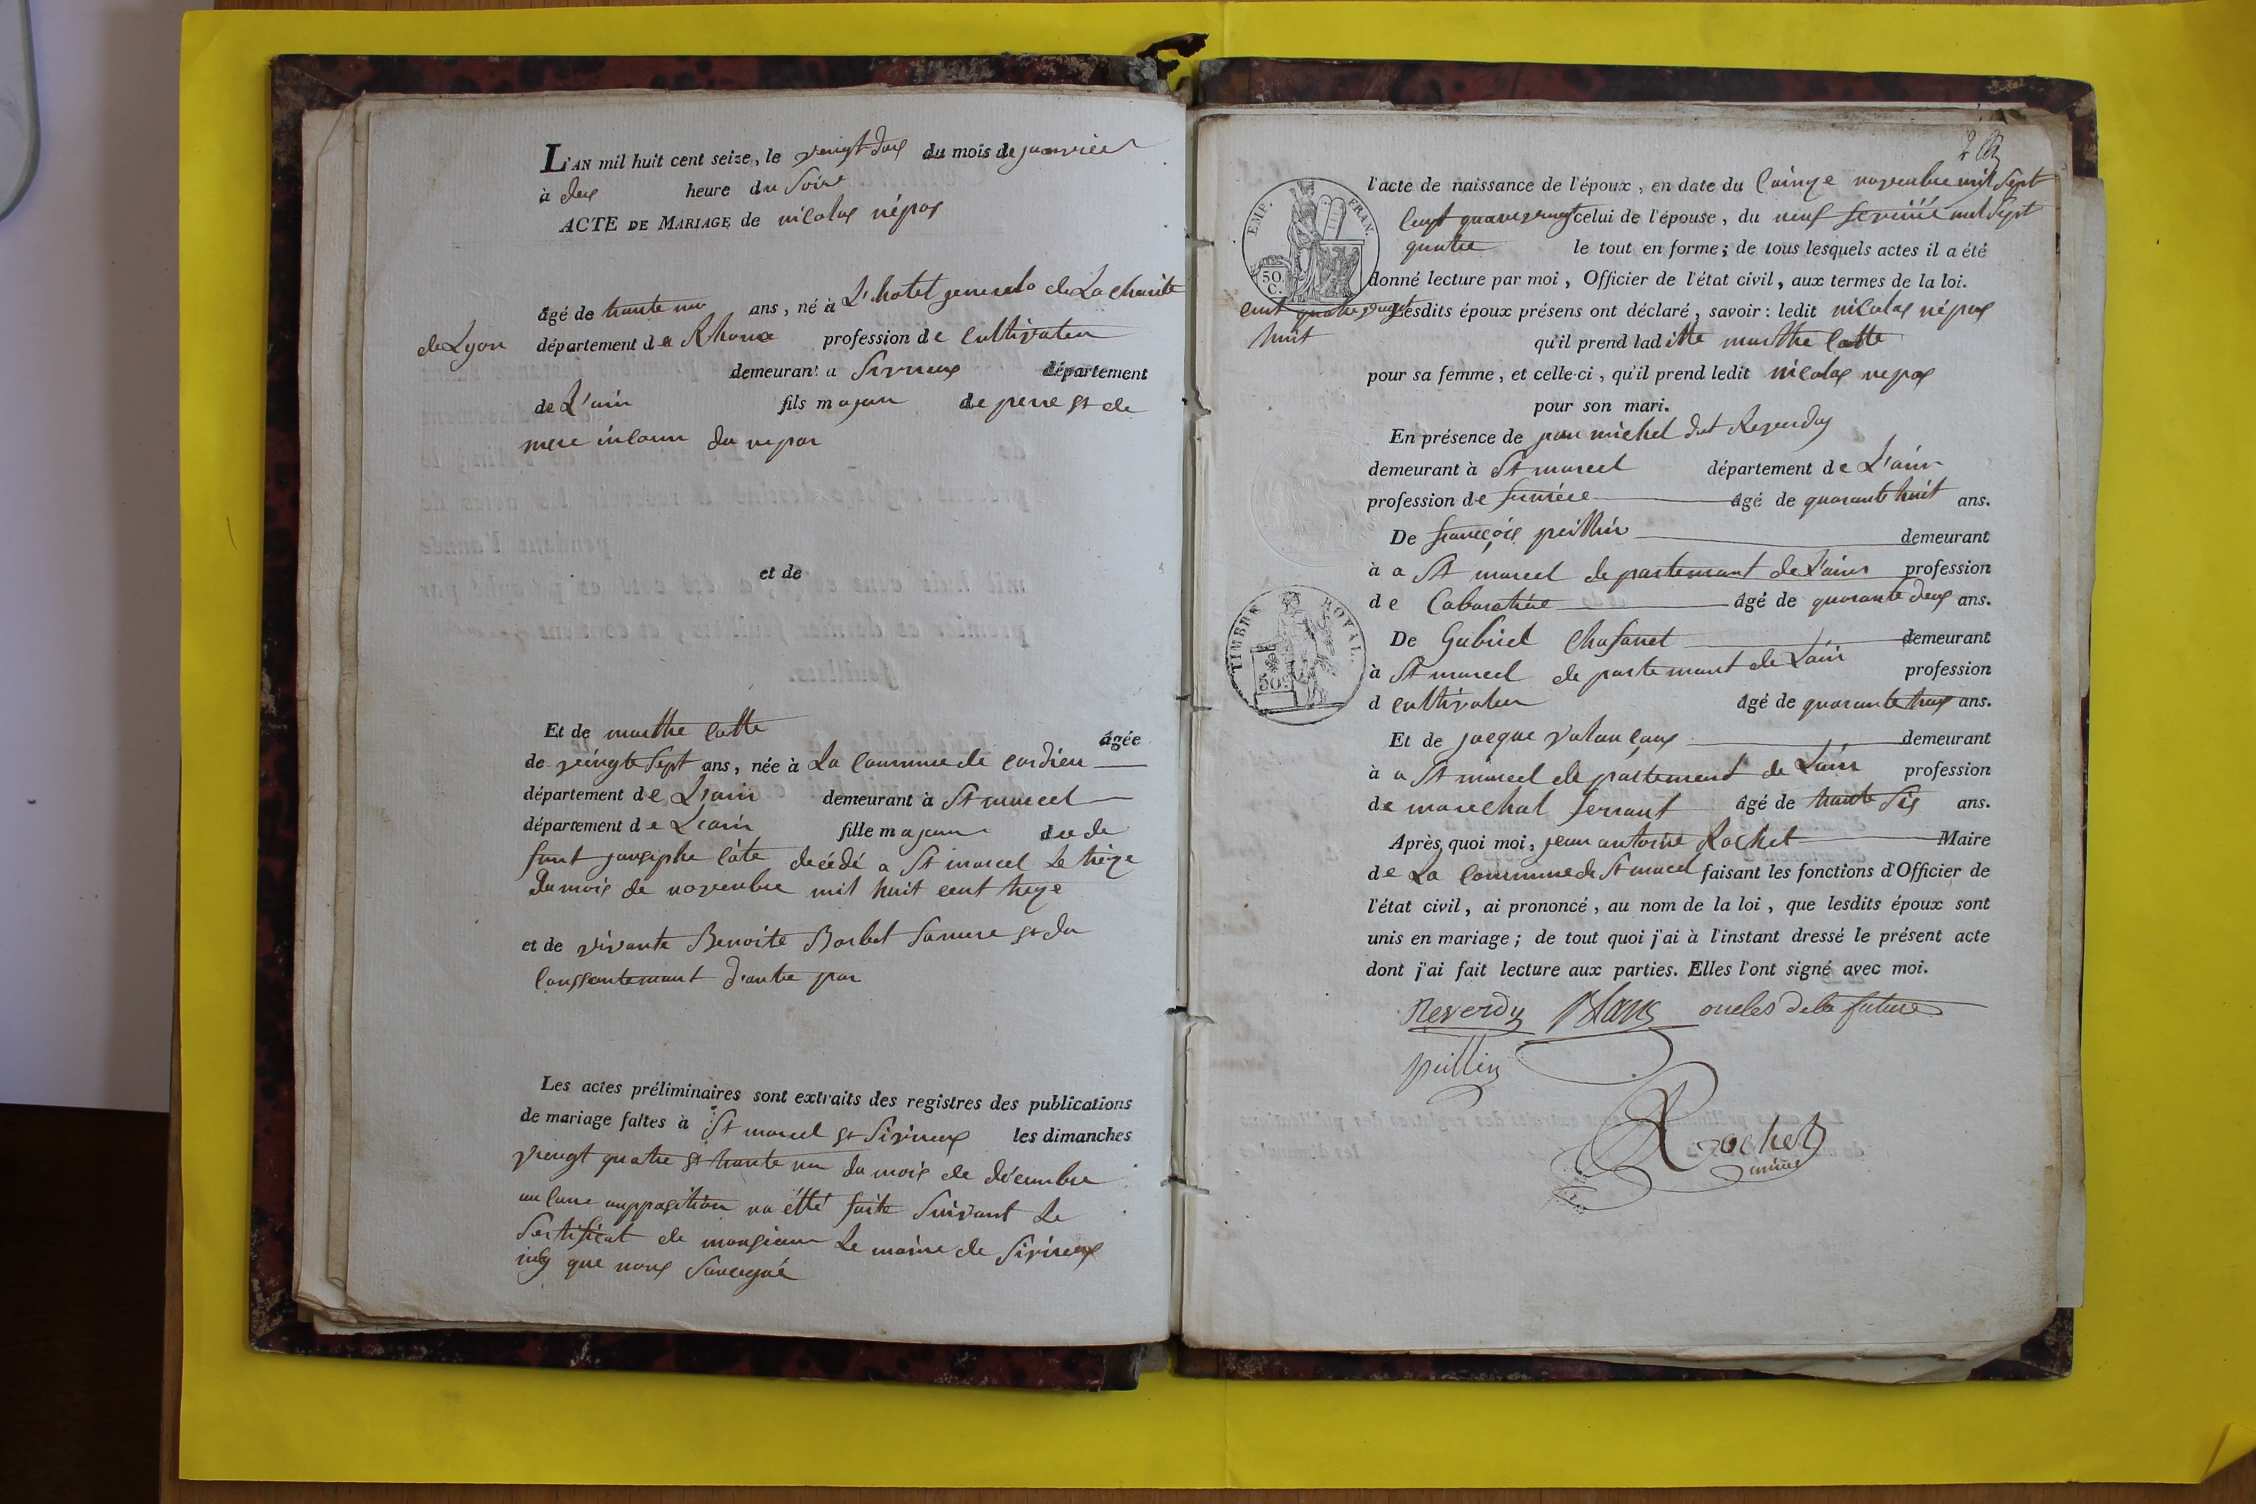 L'AN mil huit cent seize, le vingt deux du mois de janvier
à deux heure du Soire
ACTE DE MARIAGE de nicolas népos
âgé de trante un ans, né à L'hotel generale de La charité
de Lyon département de Rhone profession de cultivateu
demeurant a Sivrieux département
de L'ain fils majeur de pere et de
mere inconu du nepos
et de
Et de marthe Catte âgée
de veingte Sept ans, née à La Commune de cordieu
département de L'ain demeurant à St marcel
département de L'ain fille majeure de
decédé a St marcel le treze
Du mois de novembre mil huit cent treze
et de vivante Benoite Borbet Samere et du
Conssentemant d'autre par
Les actes préliminaires sont extraits des registres des publications
de mariage faites à St marcel et Sivrieux les dimanches
viengt quatre et trante un du mois de décembre
au cune aupposition na étté faite Suivant Le
Sertificat de monsieur Le maire de Sivrieux
que nous
l'acte de naissance de l'époux, en date du Cainze novembre mil Sept
Cent quatrevingt celui de l'épouse, du neuf fevrié mil Sept
quatre le tout en forme; de tous lesquels actes il a été
donné lecture par moi, Officier de l'état civil, aux termes de la loi.
cent quatre vingt Lesdits époux présens ont déclaré, savoir: ledit nicolas népos
huit qu'il prend laditte marthe Catte
pour sa femme, et celle-ci, qu'il prend ledit nicolas nepos
pour son mari.
En présence de jean michel dit Reverdy
demeurant à St marcel département de L'ain
profession de fermiere âgé de quarante huit ans.
De françois peillin demeurant
à a St marcel departemant de L'ain profession
de Cabaretiére âgé de quarante deux ans.
De Gabriel Chafanet demeurant
à St marcel departemant de Lain profession
d cultivateu âgé de quarante trois ans.
Et de jacque demeurant
à a St marcel departement de Lain profession
de marechal ferrant âgé de trante Sis ans.
Après quoi moi, jean antoine Rochet Maire
de La Commune de St marcel faisant les fonctions d'Officier de
l'état civil, ai prononcé, au nom de la loi, que lesdits époux sont
unis en mariage; de tout quoi j'ai à l'instant dressé le présent acte
dont j'ai fait lecture aux parties. Elles l'ont signé avec moi.
Reverdy oncles de la future
peillin
Rochet
maire
EMP. FRAN.
50
C.
TIMBRE ROYAL.
50